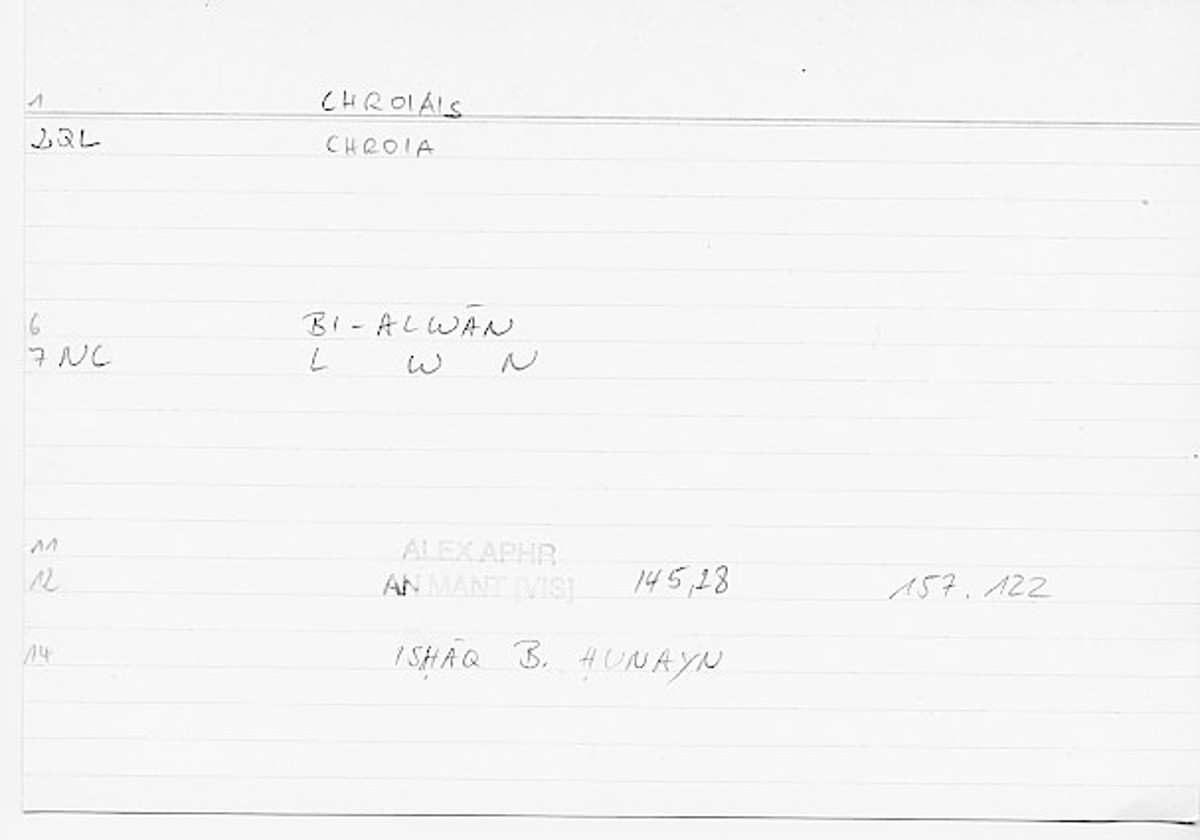 1 CHROIAIS
2QL CHROIA
6 BI-ALWĀN
7 NC L W N
11 ALEX APHR
12 AN MANT [VIS] 145,18 157.122
14 ISḤĀQ B. ḤUNAYN